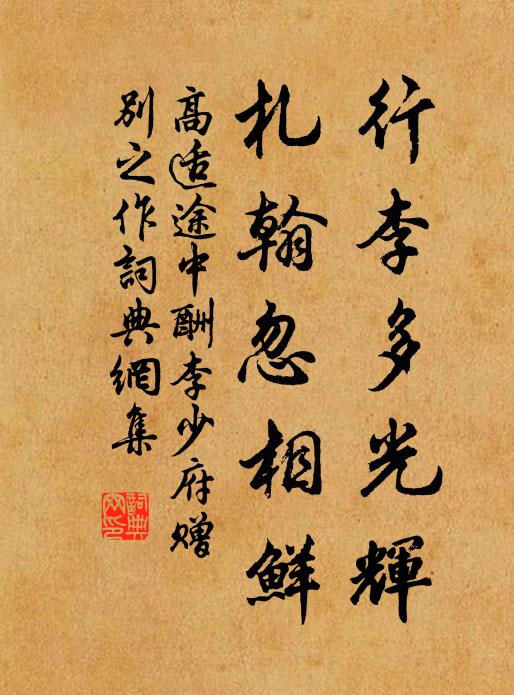 行李多光輝
札翰忽相鮮
高适途中酬李少府贈
別之作詞典網集
詞典
网印